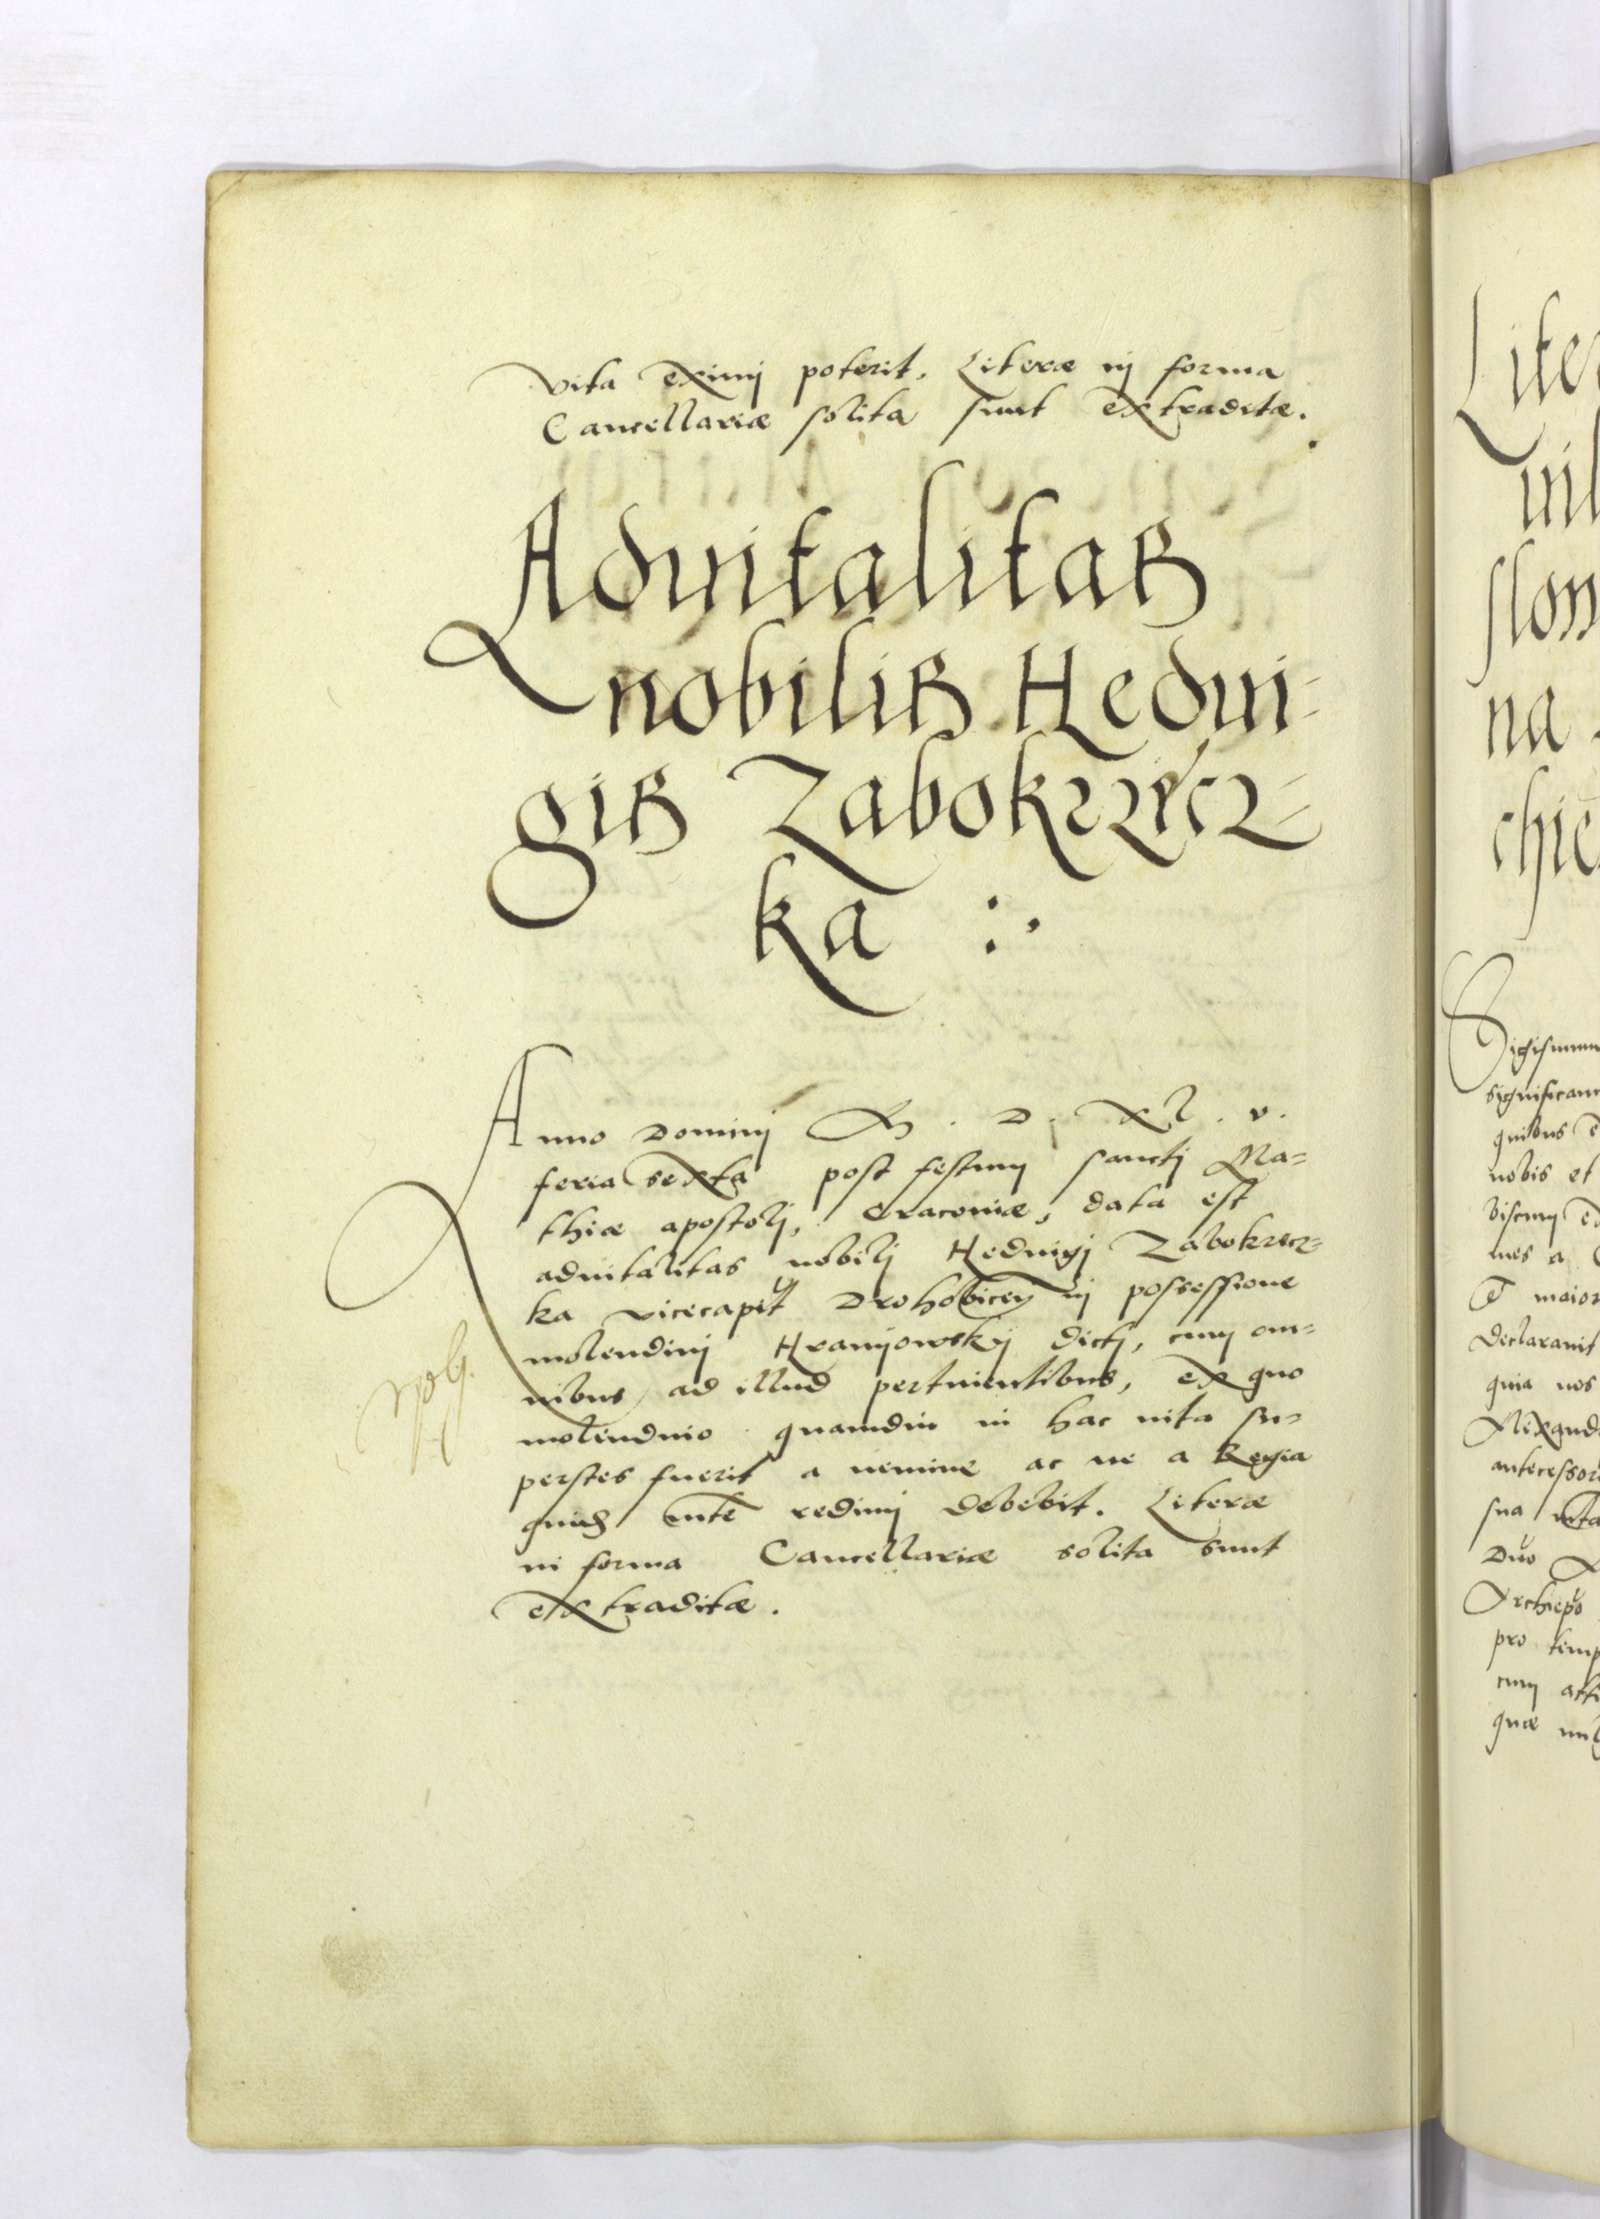 vita eximi poterit. Literæ in forma
Cancellariæ solita sunt extraditæ.
Aduitalitas
nobilis Hedui-
gis Zabokrzecz-
ka :.
Anno Domini M. D. XL. v.
feria sexta post festum sancti Ma=
thiæ apostoli, Cracoviæ, data est
aduitalitas nobili Heduigi Zabokrzecz=
ka vicecapit Drohobicen in possessione
molendini Hranijowskij dicti, cum om=
nibus ad illud pertinentibus, ex quo
molendino quamdiu in hac uita su=
perstes fuerit a nemine ac ne a Regia
quidem mte redimi debebit. Literæ
in forma Cancellariæ solita sunt
extraditæ.
Liter
uil
slom
na
chie
Sigismun
significam
quibus
nobis et
biscum
mes a
maior
declarauit
quia nos
Alexand
antecessor
sua
Duo
Archiepo
pro temp
cum
quæ